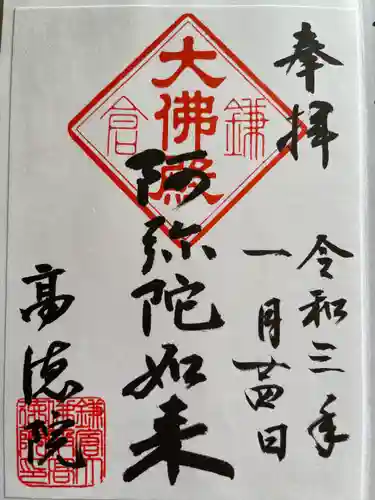 奉拝
令和三年
一月廿四日
鎌倉
大佛殿
阿弥陀如来
高徳院